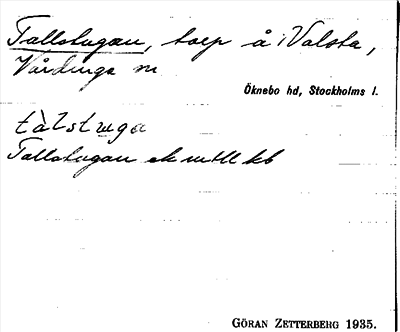 Tallstugan, torp å Valsta,
Vårdinge sn
Öknebo hd, Stockholms l.
tàlstuga
Tallstugan ek mtll kb
GÖRAN ZETTERBERG 1935.